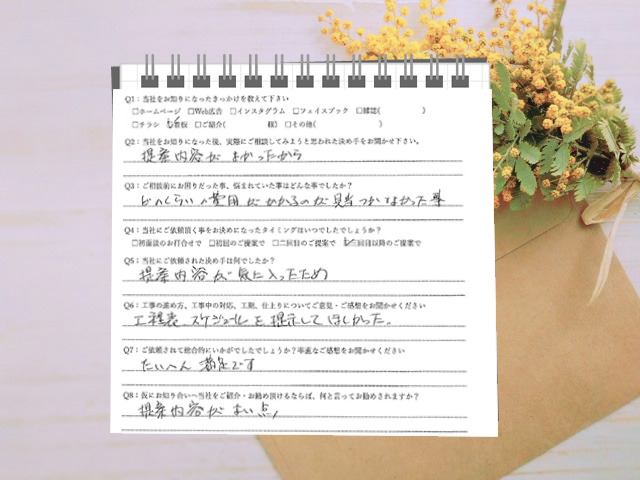 Q1：当社をお知りになったきっかけを教えて下さい
□ホームページ □Web広告 □インスタグラム □フェイスブック □雑誌( )
□チラシ ☑看板 □ご紹介( 様) □その他( )
Q2：当社をお知りになった後、実際にご相談してみようと思われた決め手をお聞かせ下さい。
提案内容が よかったから
Q3：ご相談前にお困りだった事、悩まれていた事はどんな事でしたか？
どのくらいの費用がかかるのが見当つかなかった事
Q4：当社にご依頼頂く事をお決めになったタイミングはいつでしたでしょうか？
□初面談のお打合せで □初回のご提案で □二回目のご提案で ☑三回目以降のご提案で
Q5：当社にご依頼された決め手は何でしたか？
提案内容が気に入ったため
Q6：工事の進め方、工事中の対応、工期、仕上りについてご意見・ご感想をお聞かせください
工程表、スケジュールを提示してほしかった。
Q7：ご依頼されて総合的にいかがでしたでしょうか？率直なご感想をお聞かせください
たいへん 満足です
Q8：仮にお知り合いへ当社をご紹介・お勧め頂けるならば、何と言ってお勧めされますか？
提案内容が よい点